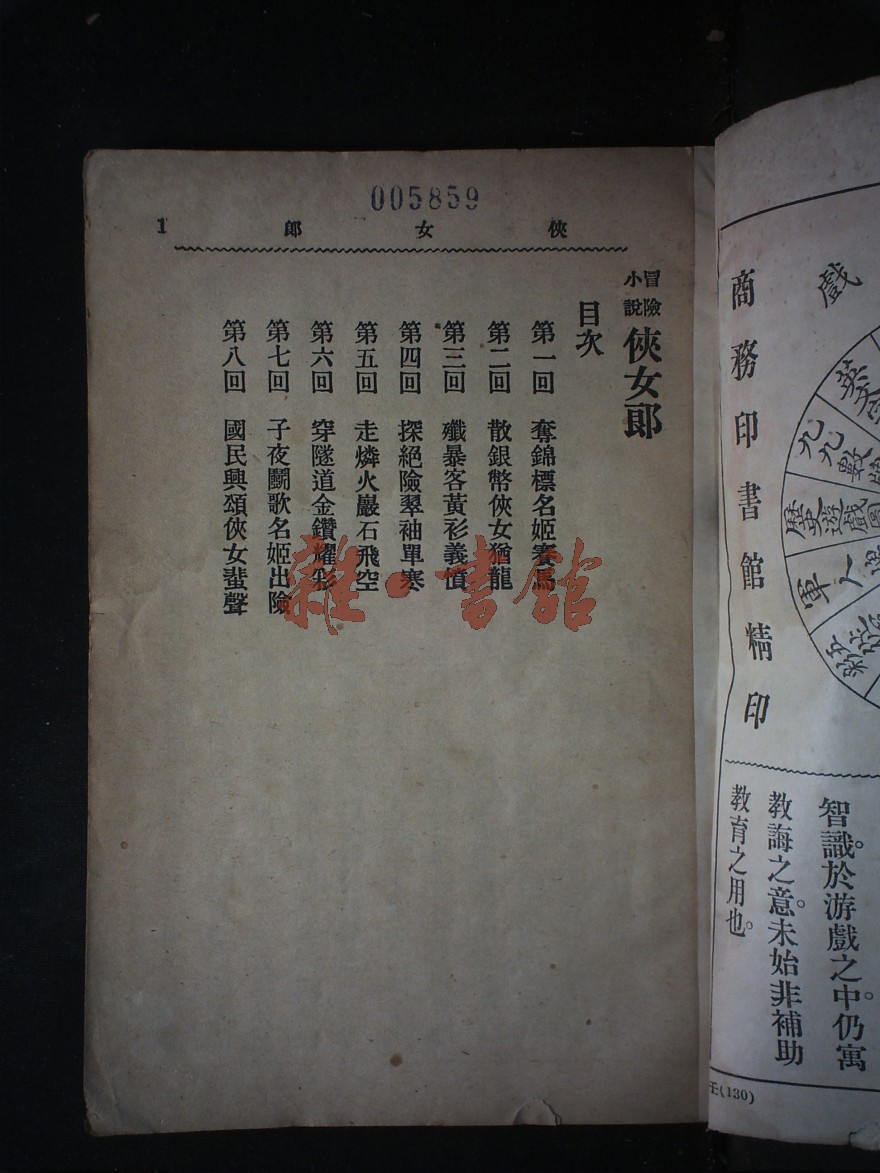 005859
俠女郎
1
冒險小說 俠女郎
目次
第一回 奪錦標名姬賽馬
第二回 散銀幣俠女猶龍
第三回 殲暴客黃衫義憤
第四回 探絕險翠袖單寒
第五回 走燐火巖石飛空
第六回 穿隧道金鑽耀彩
第七回 子夜鬭歌名姬出險
第八回 國民興頌俠女蜚聲
雜·書館
戲
九九數
歷史遊戲圖
軍人
商務印書館精印
智識於游戲之中。仍寓
教誨之意。未始非補助
教育之用也。
壬(130)